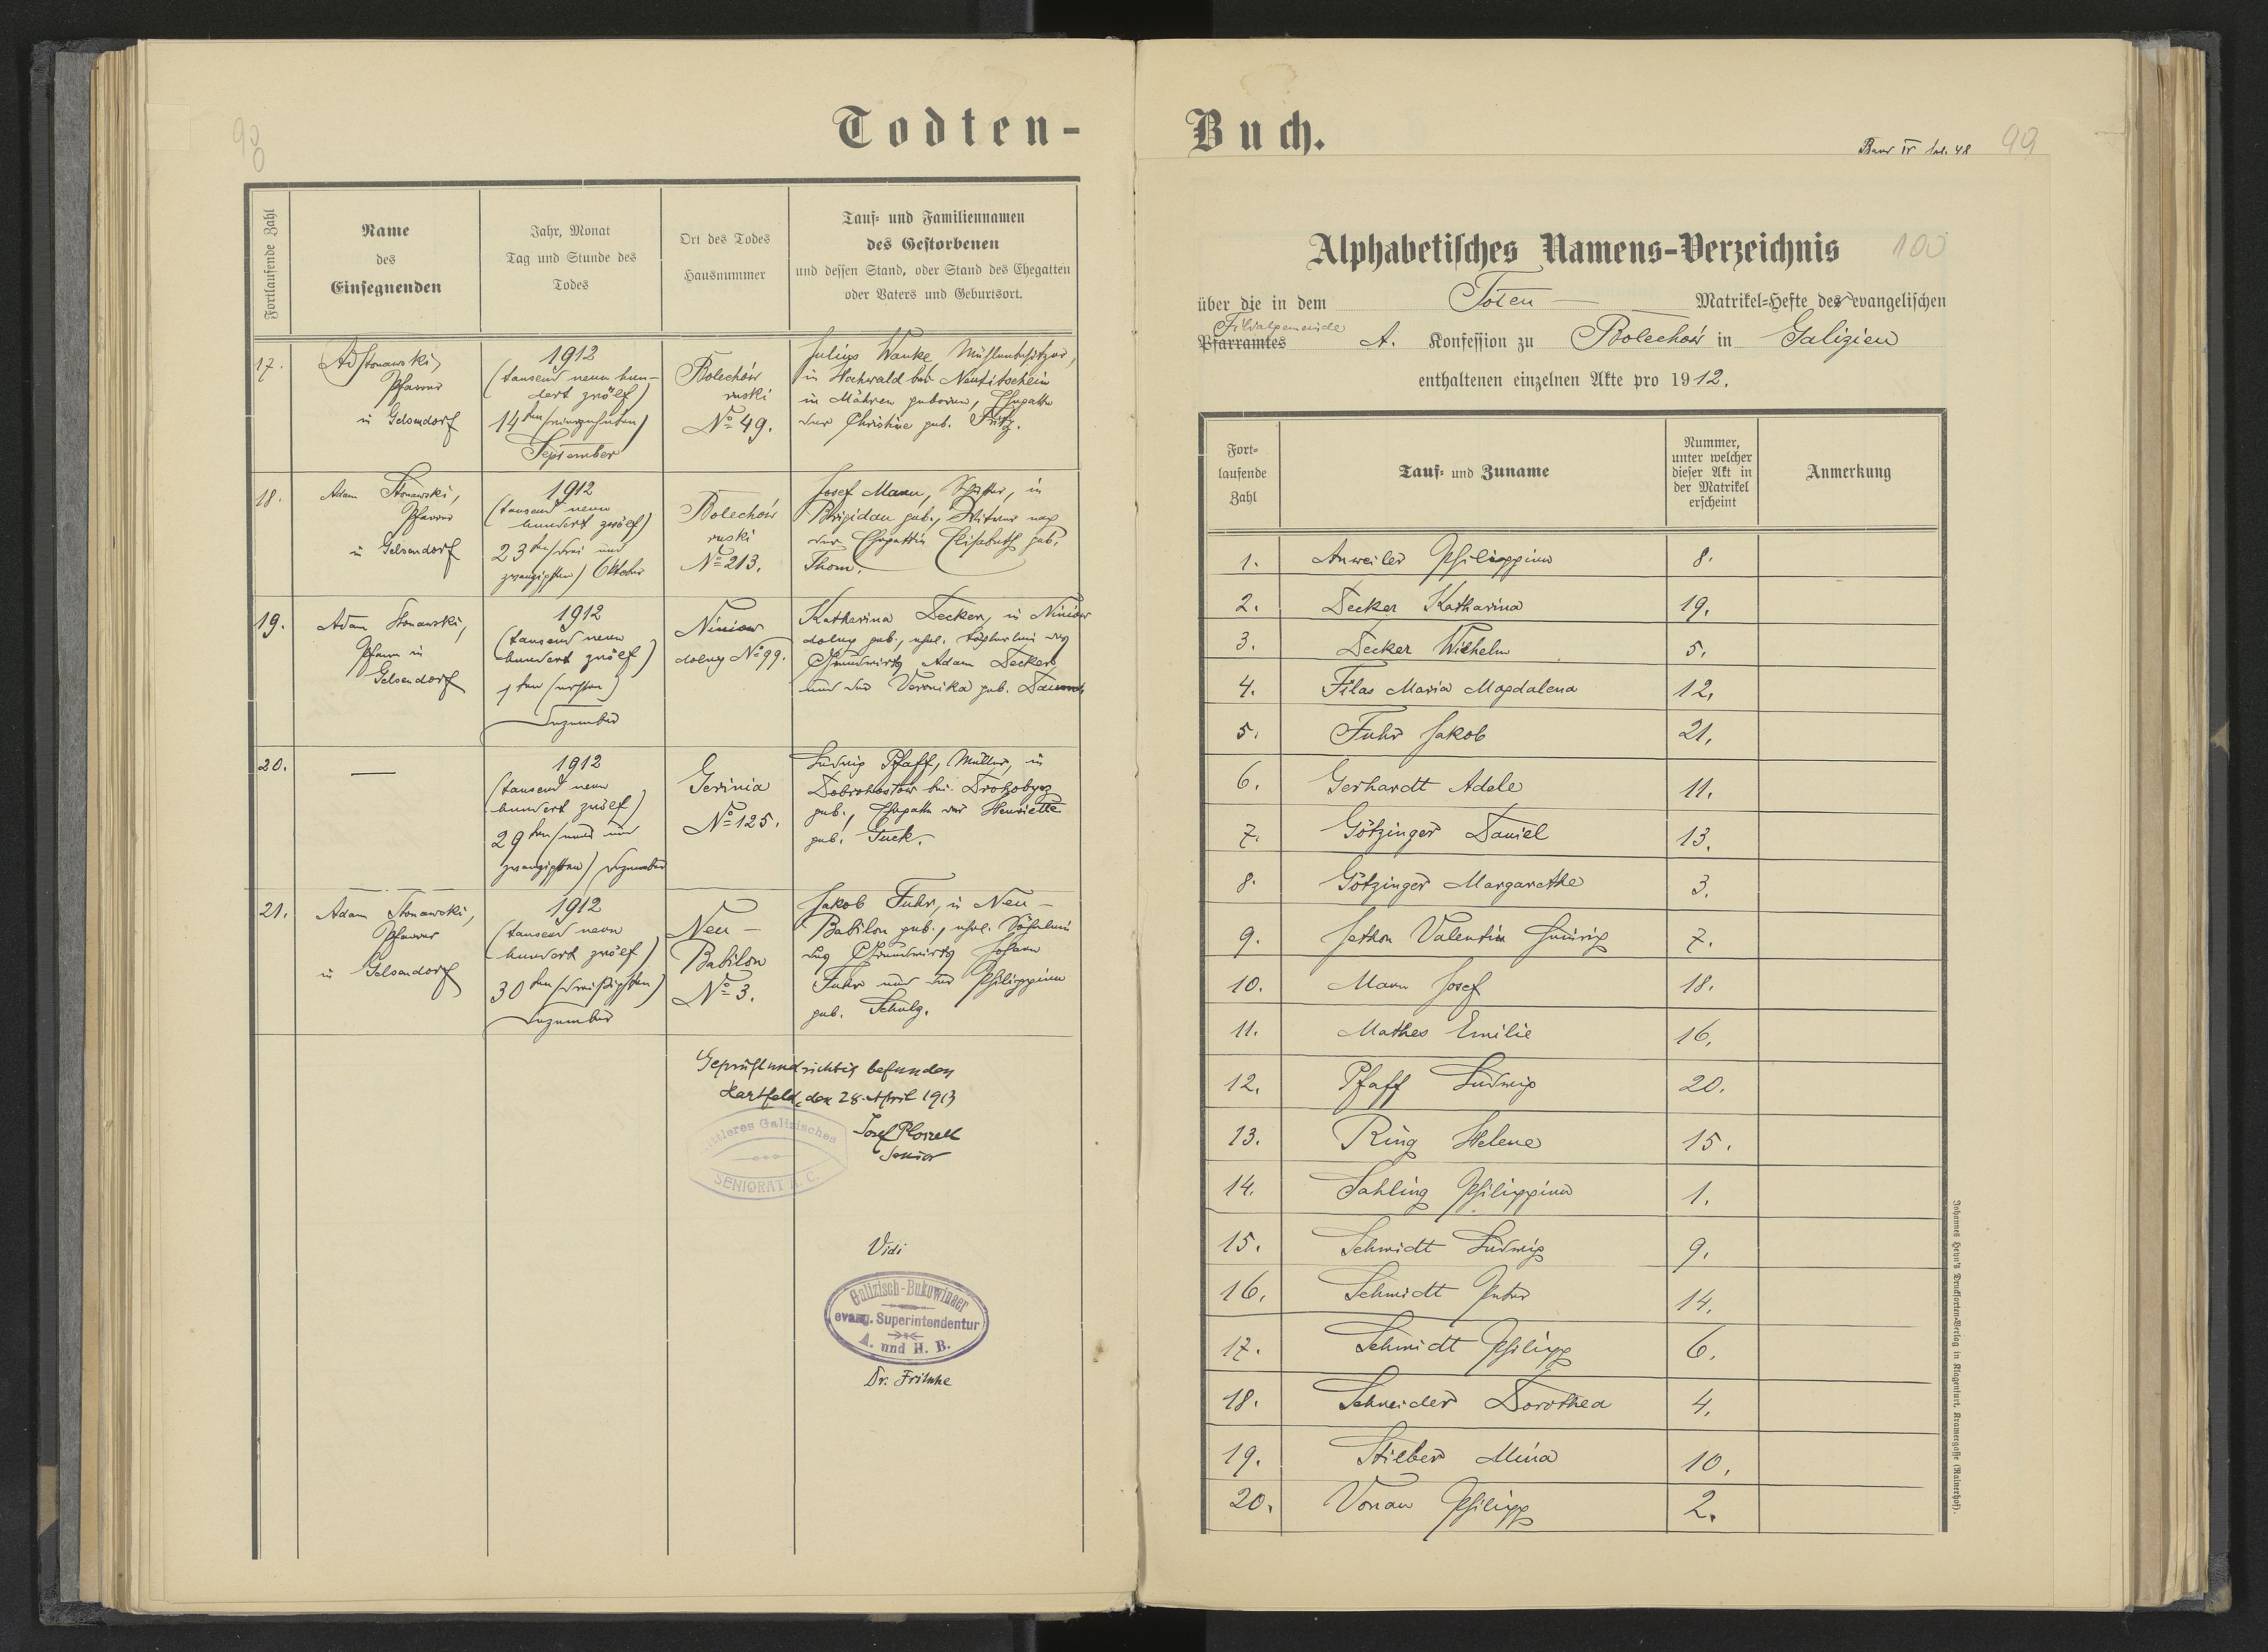 90
Todten-
Fortlaufende Zahl
Name
des
Einsegnenden
Jahr, Monat
Tag und Stunde des
Todes
Ort des Todes
Hausnummer
Tauf- und Familiennamen
des Gestorbenen
und dessen Stand, oder Stand des Ehegatten
oder Vaters und Geburtsort.
17.
Ad Stonawski,
Pfarrer
in Gelsendorf
1912
(tausend neun hun-
dert zwölf)
14ten (vierzehnten)
September
Bolechów
ruski
No 49.
Julius Wanke, Mühlenbesitzer,
in Hochwald bei Neutitschein
in Mähren geboren, Ehegatte
der Christine geb. Fritz.
18.
Adam Stonawski,
Pfarrer
in Gelsendorf
1912
(tausend neun
hundert zwölf)
23ten (drei und
zwanzigsten) Oktober
Bolechów
ruski
No 213.
Josef Mann, in
Brigidau geb., Witwer nach
der Ehegattin Elisabeth geb.
Thom.
19.
Adam Stonawski,
Pfarrer in
Gelsendorf
1912
(tausend neun
hundert zwölf)
1ten (ersten)
Dezember
Niniow
dolny No 99.
Katharina Decker, in Niniow
dolny geb., ehel. Töchterlein des
Grundwirts Adam Decker
und der Veronika geb.
20.
—
1912
(tausend neun
hundert zwölf)
29ten (neun und
zwanzigsten) Dezember
Gerinia
No 125.
Ludwig Pfaff, Müller, in
Dobrohostów bei Drohobycz
geb., Ehegatte der Henriette
geb. Tuck.
21.
Adam Stonawski,
Pfarrer
in Gelsendorf
1912
(tausend neun
hundert zwölf)
30ten (dreißigsten)
Dezember
Neu-
Babilon
No 3.
Jakob Fuhr, in Neu-
Babilon geb., ehel. Söhnlein
des Grundwirts Johann
Fuhr und der Philippine
geb. Schulz.
Geprüft und richtig befunden
Hartfeld, den 28. April 1913
Josef
Senior
Mittleres Galizisches
SENIORAT A. C.
Vidi
Galizisch-Bukowinaer
evang. Superintendentur
A. und H. B.
Dr. Fritsche
Buch.
IV fol. 48
99
Alphabetisches Namens-Verzeichnis
100
über die in dem Toten — Matrikel-Hefte der evangelischen
Filialgemeinde
Pfarramtes A. Konfession zu Bolechów in Galizien
enthaltenen einzelnen Akte pro 1912.
Fort-
laufende
Zahl
Tauf- und Zuname
Nummer,
unter welcher
dieser Akt in
der Matrikel
erscheint
Anmerkung
1. Anweiler Philippine 8.
2. Decker Katharina 19.
3. Decker Wilhelm 5.
4. Filas Maria Magdalena 12.
5. Fuhr Jakob 21.
6. Gerhardt Adele 11.
7. Götzinger Daniel 13.
8. Götzinger Margarethe 3.
9. Jethon Valentin Heinrich 7.
10. Mann Josef 18.
11. Mathes Emilie 16.
12. Pfaff Ludwig 20.
13. Ring Helene 15.
14. Sahling Philippine 1.
15. Schmidt Ludwig 9.
16. Schmidt Peter 14.
17. Schmidt Philipp 6.
18. Schneider Dorothea 4.
19. Stieber Mina 10.
20. Vonau Philipp 2.
Johannes Heyn's Drucksorten-Verlag in Klagenfurt, Kramergasse (Rainerhof).